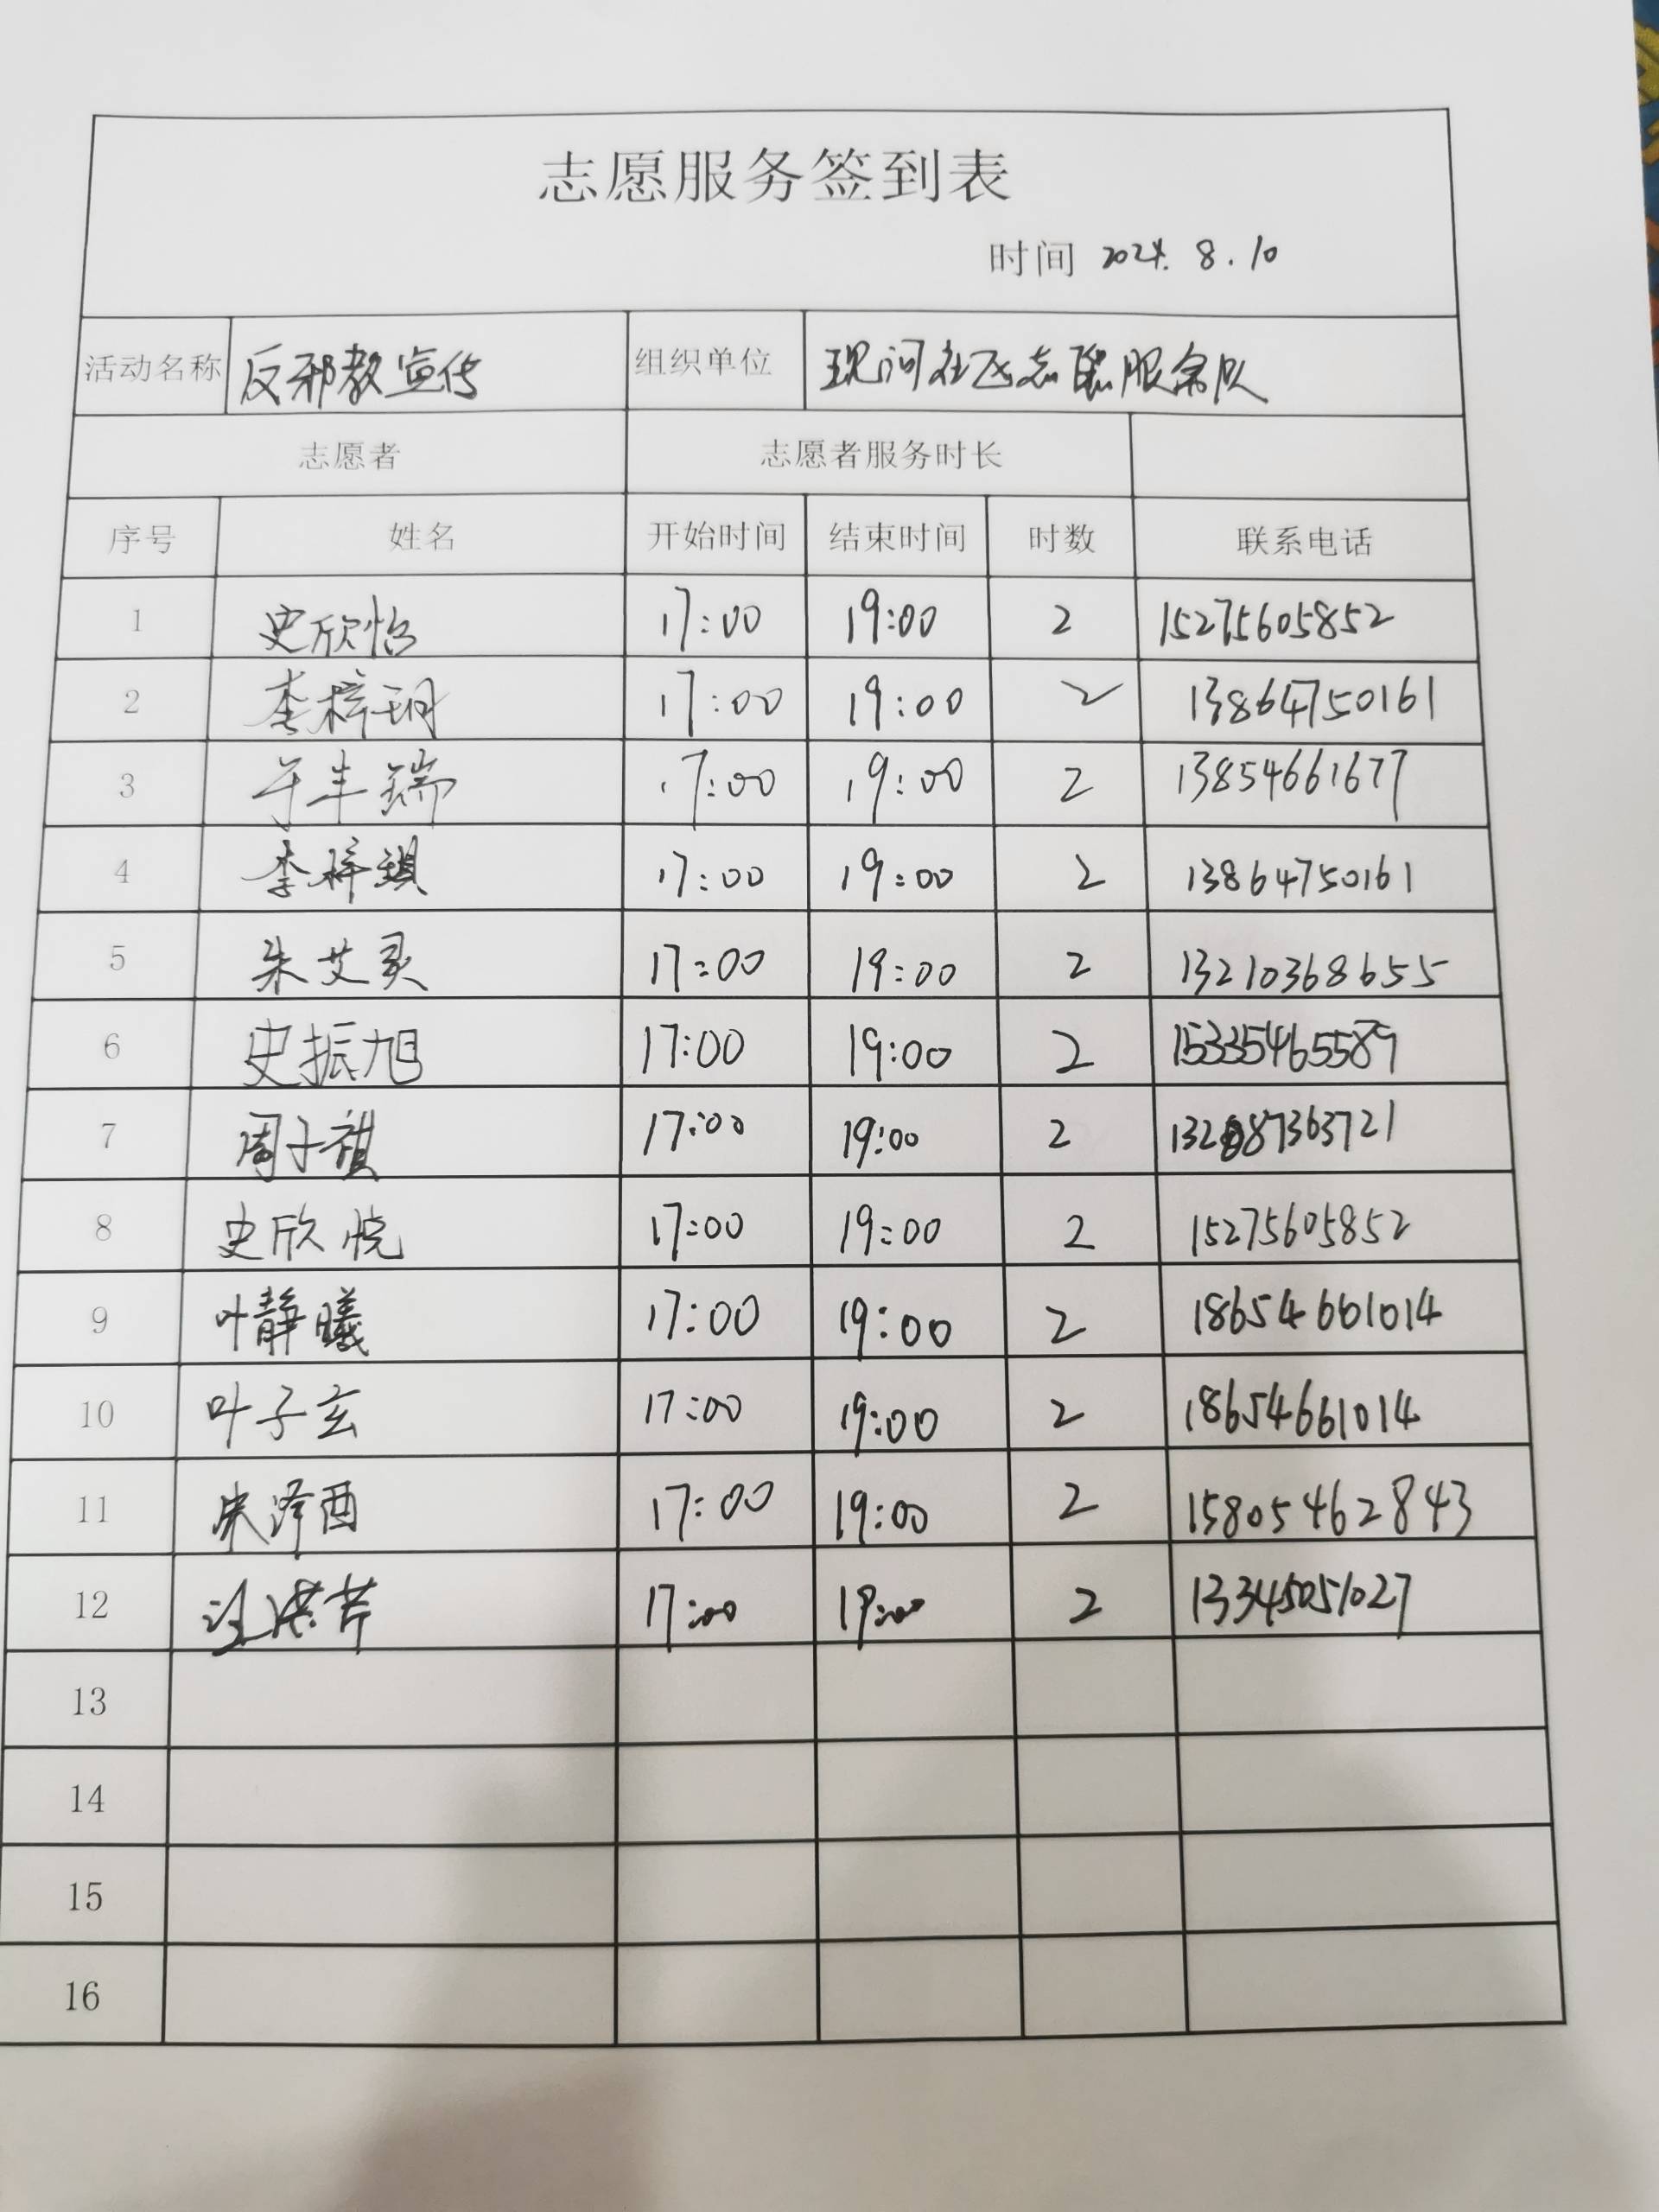 志愿服务签到表
时间 2024.8.10
活动名称 反邪教宣传 组织单位 社区志愿服务队
志愿者 志愿者服务时长
序号 姓名 开始时间 结束时间 时数 联系电话
1 史欣怡 17:00 19:00 2 15275605852
2 李梓玥 17:00 19:00 2 13864750161
3 于丰瑞 17:00 19:00 2 13854661677
4 李梓琪 17:00 19:00 2 13864750161
5 朱艾灵 17:00 19:00 2 13210368655
6 史振旭 17:00 19:00 2 15335465589
7 周子祺 17:00 19:00 2
8 史欣悦 17:00 19:00 2 15275605852
9 叶静曦 17:00 19:00 2 18654661014
10 叶子玄 17:00 19:00 2 18654661014
11 泽西 17:00 19:00 2 15805462843
12 17:00 19:00 2 13345051027
13
14
15
16